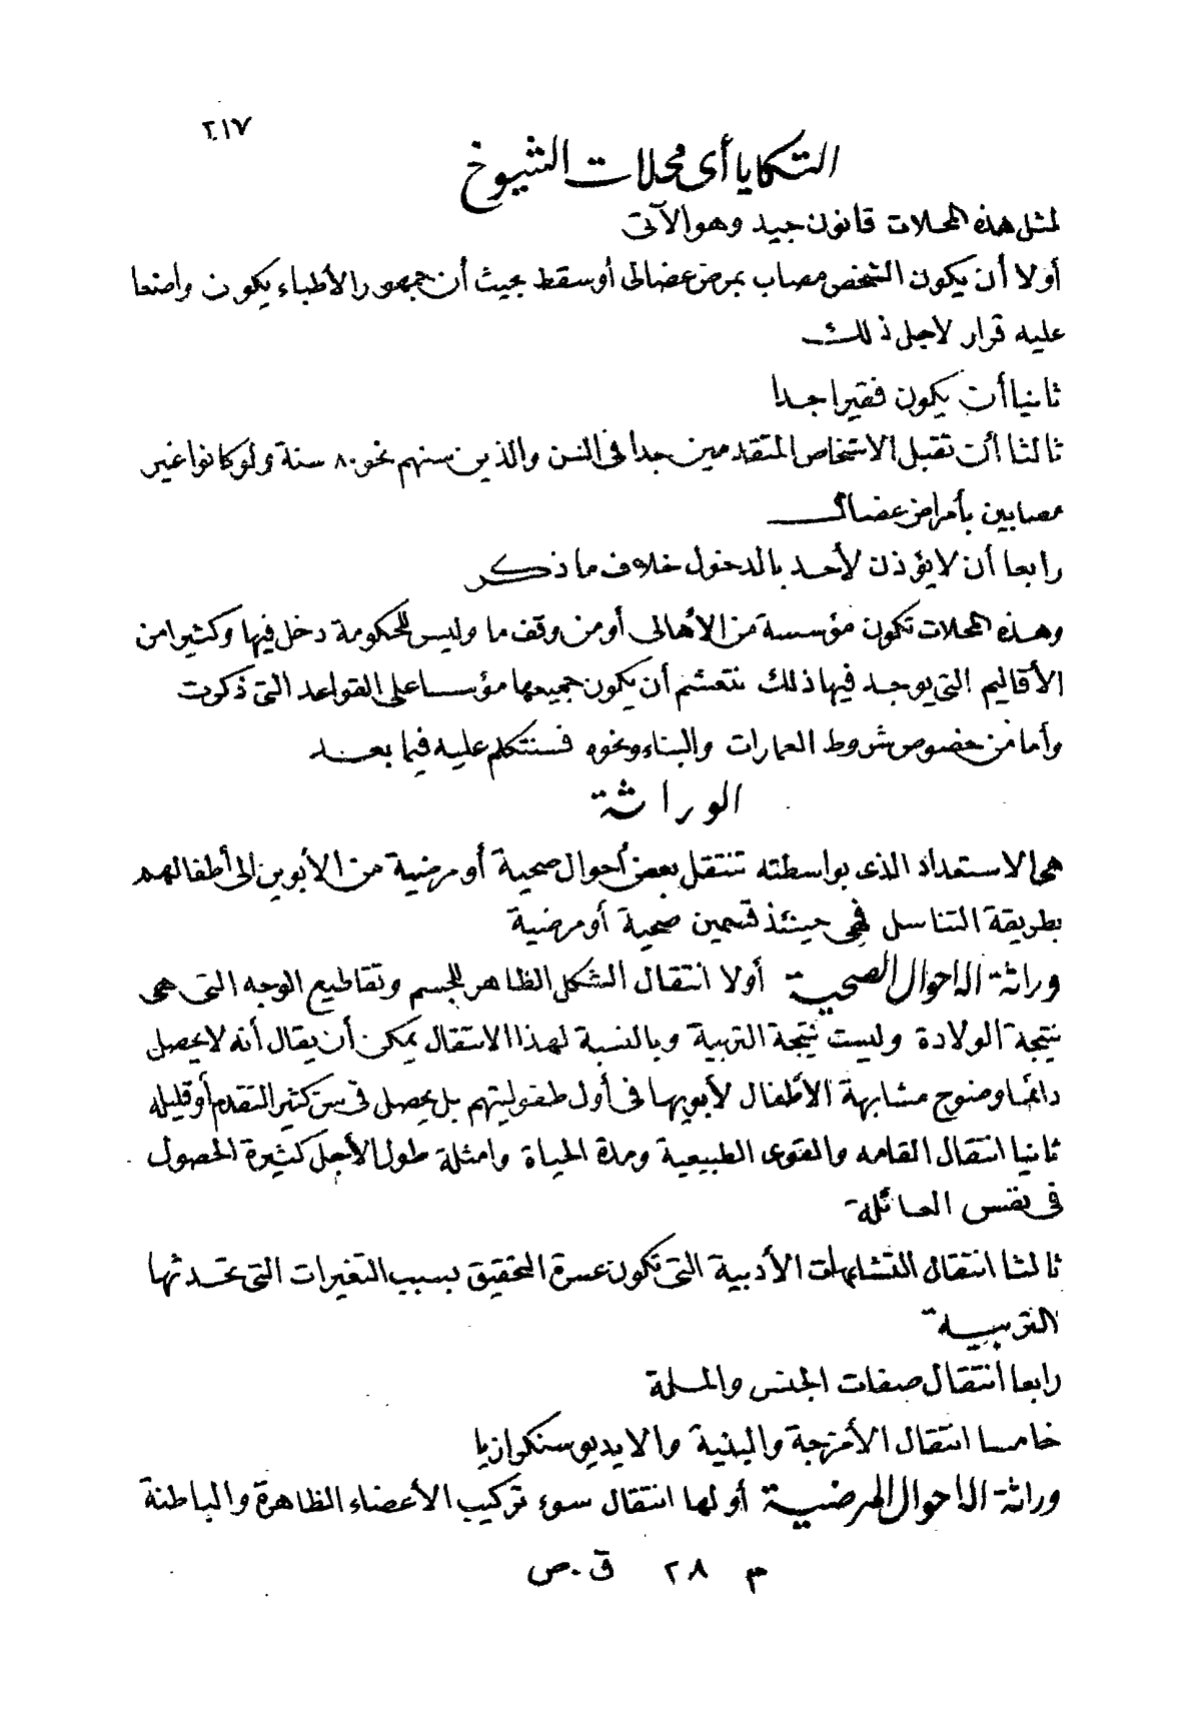 ٢١٧
التكايا أى محلات الشيوخ
لمثل هذه المحلات قانون جيد وهو الآتى
أولا أن يكون الشخص مصاب بمرض عضالى أو سقط بحيث أن جمهور الأطباء يكون واضعا
عليه قرار لاجل ذلك
ثانيا أن يكون فقيرا جدا
ثالثا أن تقبل الاشخاص المتقدمين جدا فى السن والذين سنهم نحو ٨٠ سنة ولو كانوا غير
مصابين بأمراض عضال
رابعا أن لا يؤذن لأحد بالدخول خلاف ما ذكر
وهذه المحلات تكون مؤسسة من الأهالى أو من وقف ما وليس للحكومة دخل فيها وكثيرا من
الأقاليم التى يوجد فيها ذلك نتعشم أن يكون جميعها مؤسسا على القواعد التى ذكرت
وأما من خصوص شروط العمارات والبناء ونحوه فسنتكلم عليه فيما بعد
الوراثة
هى الاستعداد الذى بواسطته تنتقل بعض أحوال صحية أو مرضية من الأبوين الى أطفالهم
بطريقة التناسل فهى حينئذ قسمين صحية أو مرضية
وراثة الاحوال الصحية أولا انتقال الشكل الظاهر للجسم وتقاطيع الوجه التى هى
نتيجة الولادة وليست نتيجة التربية وبالنسبة لهذا الانتقال يمكن أن يقال أنه لا يحصل
دائما وضوح مشابهة الأطفال لأبويها فى أول طفوليتهم بل يحصل فى سن كثير التقدم أو قليله
ثانيا انتقال القامه والقوى الطبيعية ومدة الحياة وامثلة طول الأجل كثيرة الحصول
فى نفس العائلة
ثالثا انتقال التشابهات الأدبية التى تكون عسرة التحقيق بسبب التغيرات التى تحدثها
التربية
رابعا انتقال صفات الجنس والملة
خامسا انتقال الأمزجة والبنية والايديوسنكرازيا
وراثة الاحوال المرضية أولها انتقال سوء تركيب الأعضاء الظاهرة والباطنة
م ٢٨ ق. ص